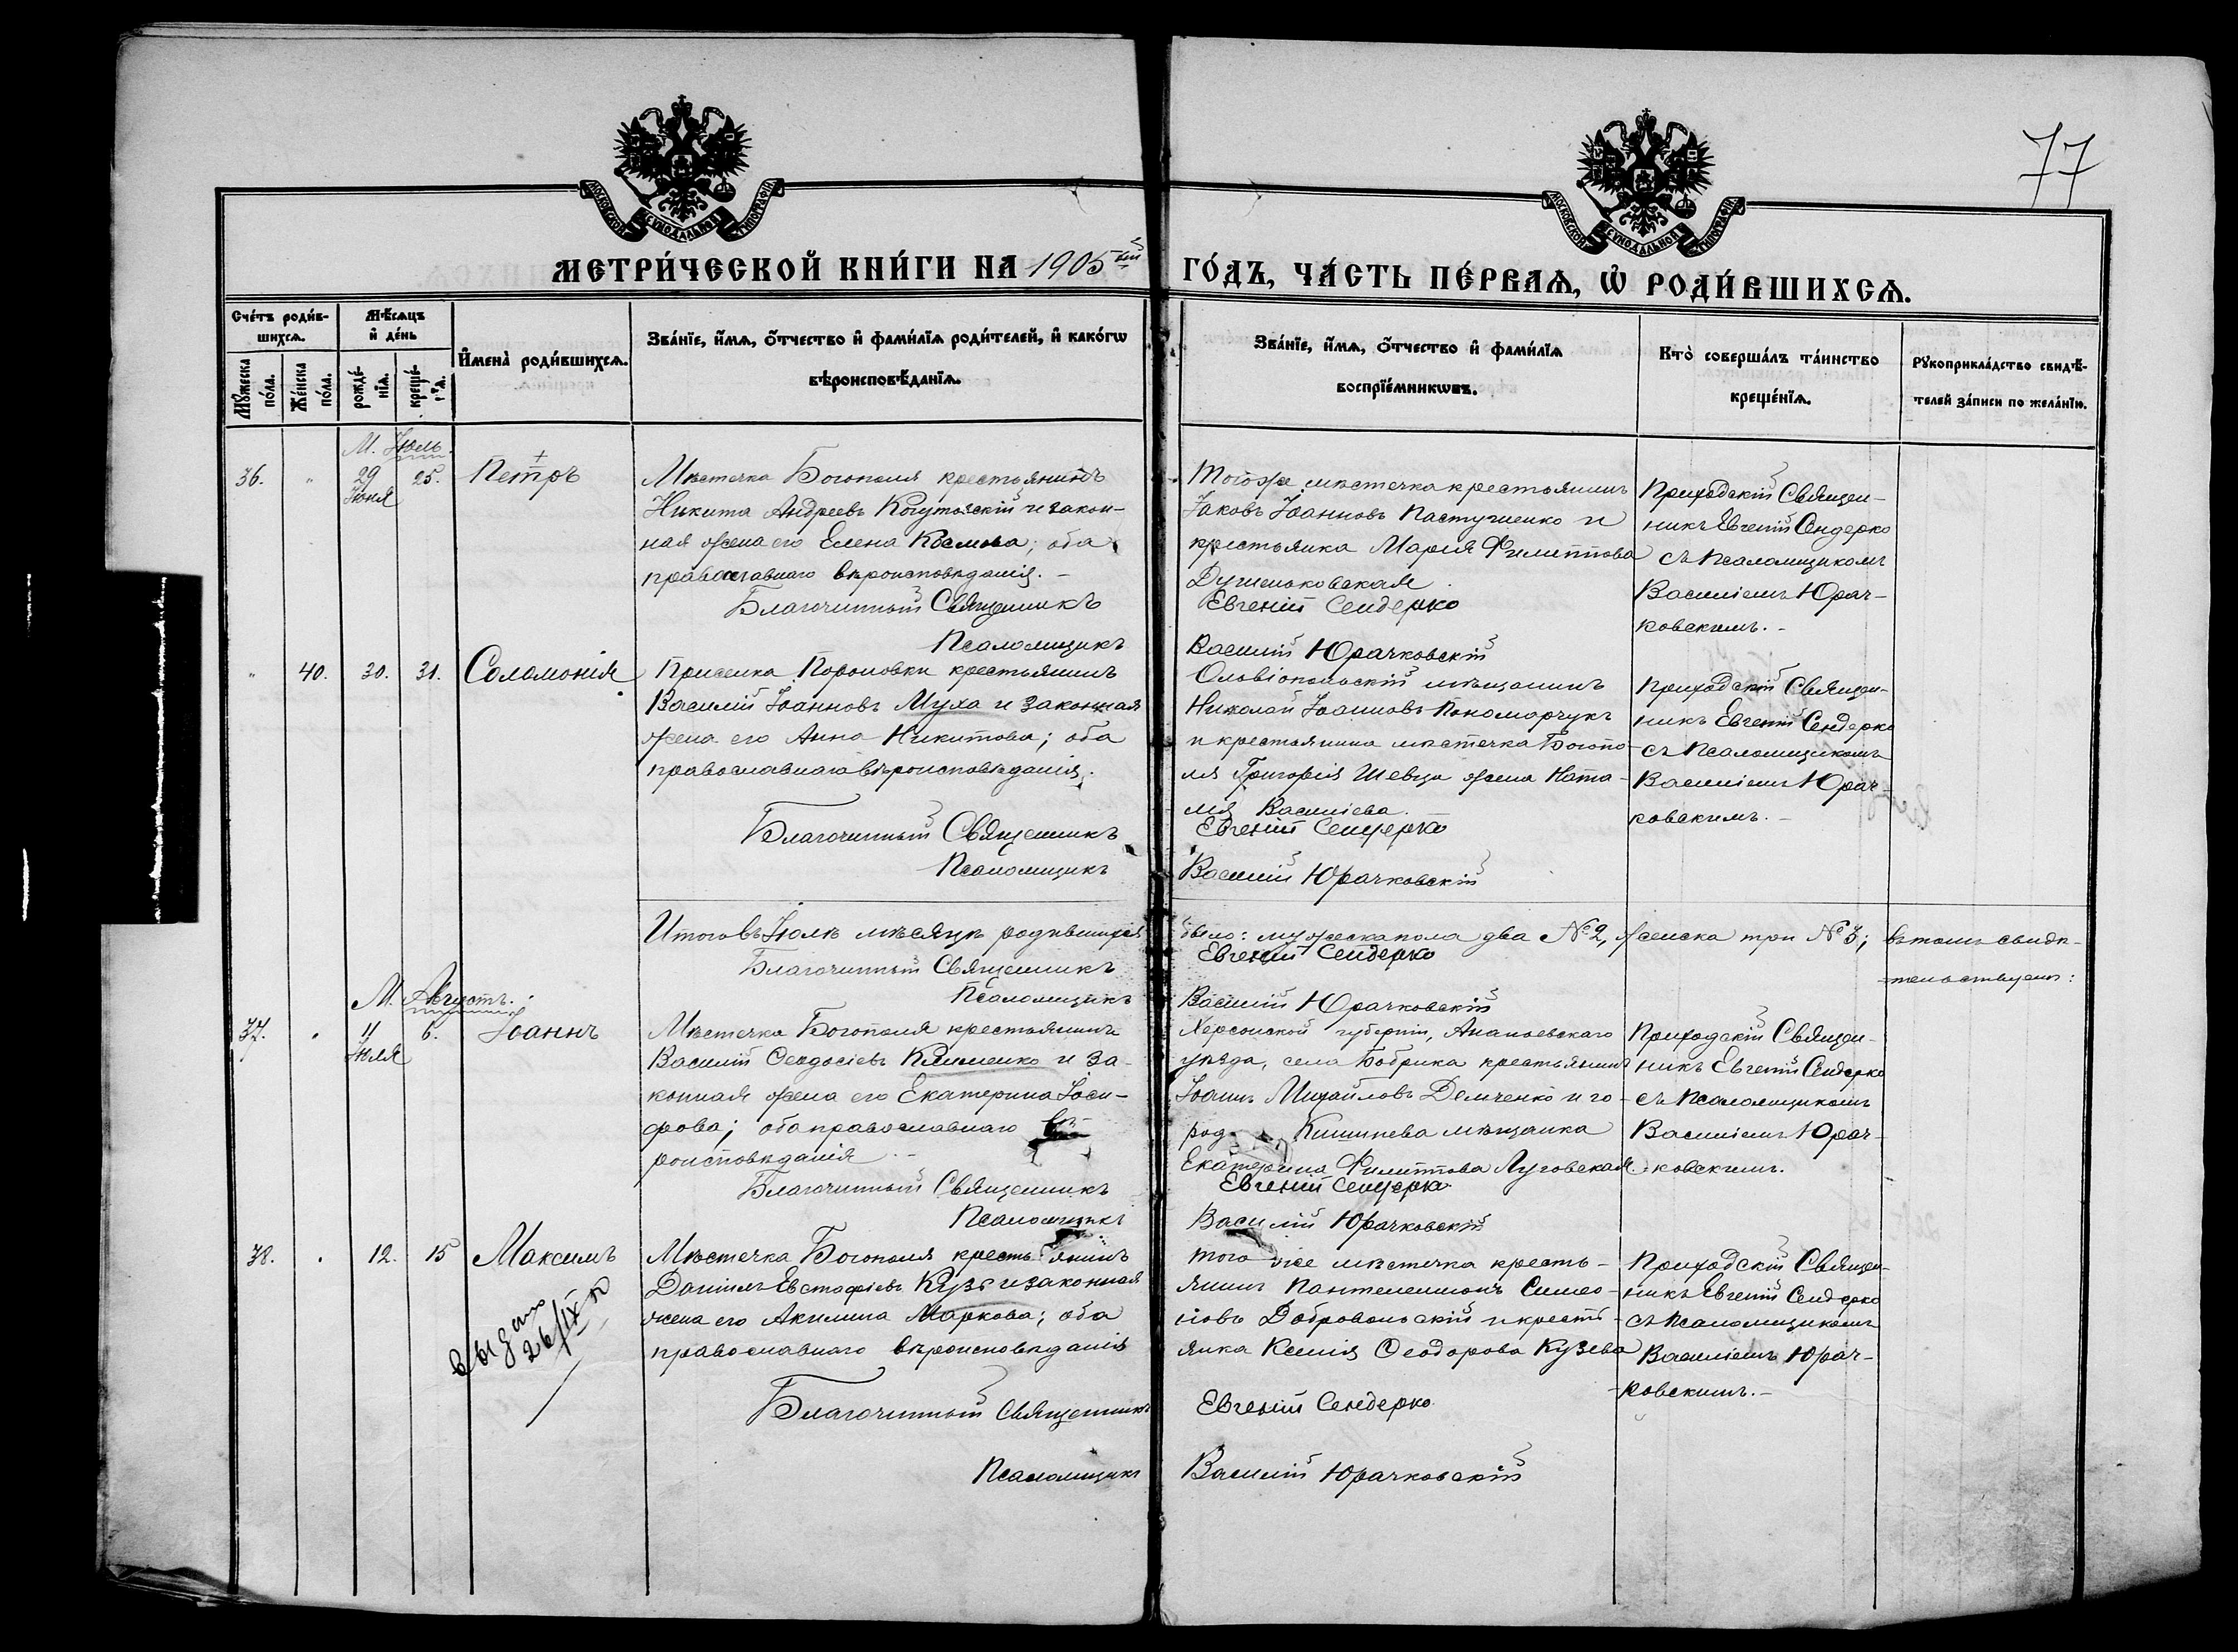 77
МОСКОВСКОЙ СѴНОДАЛЬНОЙ ТИПОГРАФІИ
МОСКОВСКОЙ СѴНОДАЛЬНОЙ ТИПОГРАФІИ
МЕТРИ́ЧЕСКОЙ КНИ́ГИ НА 1905ый ГО́ДЪ, ЧА́СТЬ ПЕ́РВАѦ, Ѡ҆ РОДИ́ВШИХСѦ.
Сче́тъ роди́в-
шихсѧ.
Мꙋ́жеска по́ла.
Же́нска по́ла.
Мѣ́сѧцъ
и҆ де́нь
рожде́-
нїѧ.
креще́-
нїѧ.
И҆мена̀ роди́вшихсѧ.
Зва́нїе, и҆́мѧ, ѻ҆́тчество и҆ фами́лїѧ роди́телей, и҆ како́гѡ
вѣроисповѣ́данїѧ.
Зва́нїе, и҆́мѧ, ѻ҆́тчество и҆ фами́лїѧ
воспрїе́мникѡвъ.
Кто̀ соверша́лъ та́инство
креще́нїѧ.
Рꙋкоприкла́дство свидѣ́-
телей за́писи по жела́нїю.
М. Іюль.
36. " 29 Іюня 25. Петръ
Мѣстечка Богополя крестьянинъ
Никита Андреевъ Когутовскій и закон-
ная жена его Елена Космова; оба
православнаго вѣроисповѣданія. -
Благочинный Священникъ
Псаломщикъ
Тогоже мѣстечка крестьянинъ
Іаковъ Іоанновъ Пастушенко и
крестьянка Марія Филиппова
Душенковская
Евгеній Сендерко
Василій Юрачковскій
Приходскій Священ-
никъ Евгеній Сендерко
съ псаломщикомъ
Василіемъ Юрач-
ковскимъ. -
" 40. 30. 31. Соломонія
Приселка Пороновки крестьянинъ
Василій Іоанновъ Муха и законная
жена его Анна Никитова; оба
православнаго вѣроисповѣданія.
Благочинный Священникъ
Псаломщикъ
Ольвіопольскій мѣщанинъ
Николай Іоанновъ Пономарчукъ
и крестьянина мѣстечка Богопо-
ля Григорія Шевца жена Ната-
лія Василіева.
Евгеній Сендерко
Василій Юрачковскій
Приходскій Священ-
никъ Евгеній Сендерко
съ псаломщикомъ
Василіемъ Юрач-
ковскимъ. -
Итого въ Іюлѣ мѣсяцѣ родившихся было: мужеска пола два № 2, женска три № 3; въ томъ свидѣ-
тельствуемъ:
Благочинный Священникъ Евгеній Сендерко
Псаломщикъ Василій Юрачковскій
М. Августъ.
37. " 4 Іюля 6. Іоаннъ
Мѣстечка Богополя крестьянинъ
Василій Ѳеодосіевъ Клименко и за-
конная жена его Екатерина Іоси-
фова; оба православнаго вѣ-
роисповѣданія -
Благочинный Священникъ
Псаломщикъ
Херсонской губерніи, Ананьевскаго
уѣзда, села Бобрика крестьянинъ
Іоаннъ Михайловъ Демченко и го-
род. Кишинева мѣщанка
Екатерина Филиппова Луговская.
Евгеній Сендерко
Василій Юрачковскій
Приходскій Священ-
никъ Евгеній Сендерко
съ псаломщикомъ
Василіемъ Юрач-
ковскимъ.
38. " 12. 15 Максимъ
Выдано
26/IX
Мѣстечка Богополя крестьянинъ
Даніилъ Евстафіевъ Кузь и законная
жена его Акилина Маркова; оба
православнаго вѣроисповѣданія
Благочинный Священникъ
Псаломщикъ
того же мѣстечка кресть-
янинъ Пантелеимонъ Симео-
новъ Добровольскій и кресть-
янка Ксенія Ѳеодорова Кузева
Евгеній Сендерко
Василій Юрачковскій
Приходскій Священ-
никъ Евгеній Сендерко
съ псаломщикомъ
Василіемъ Юрач-
ковскимъ. -